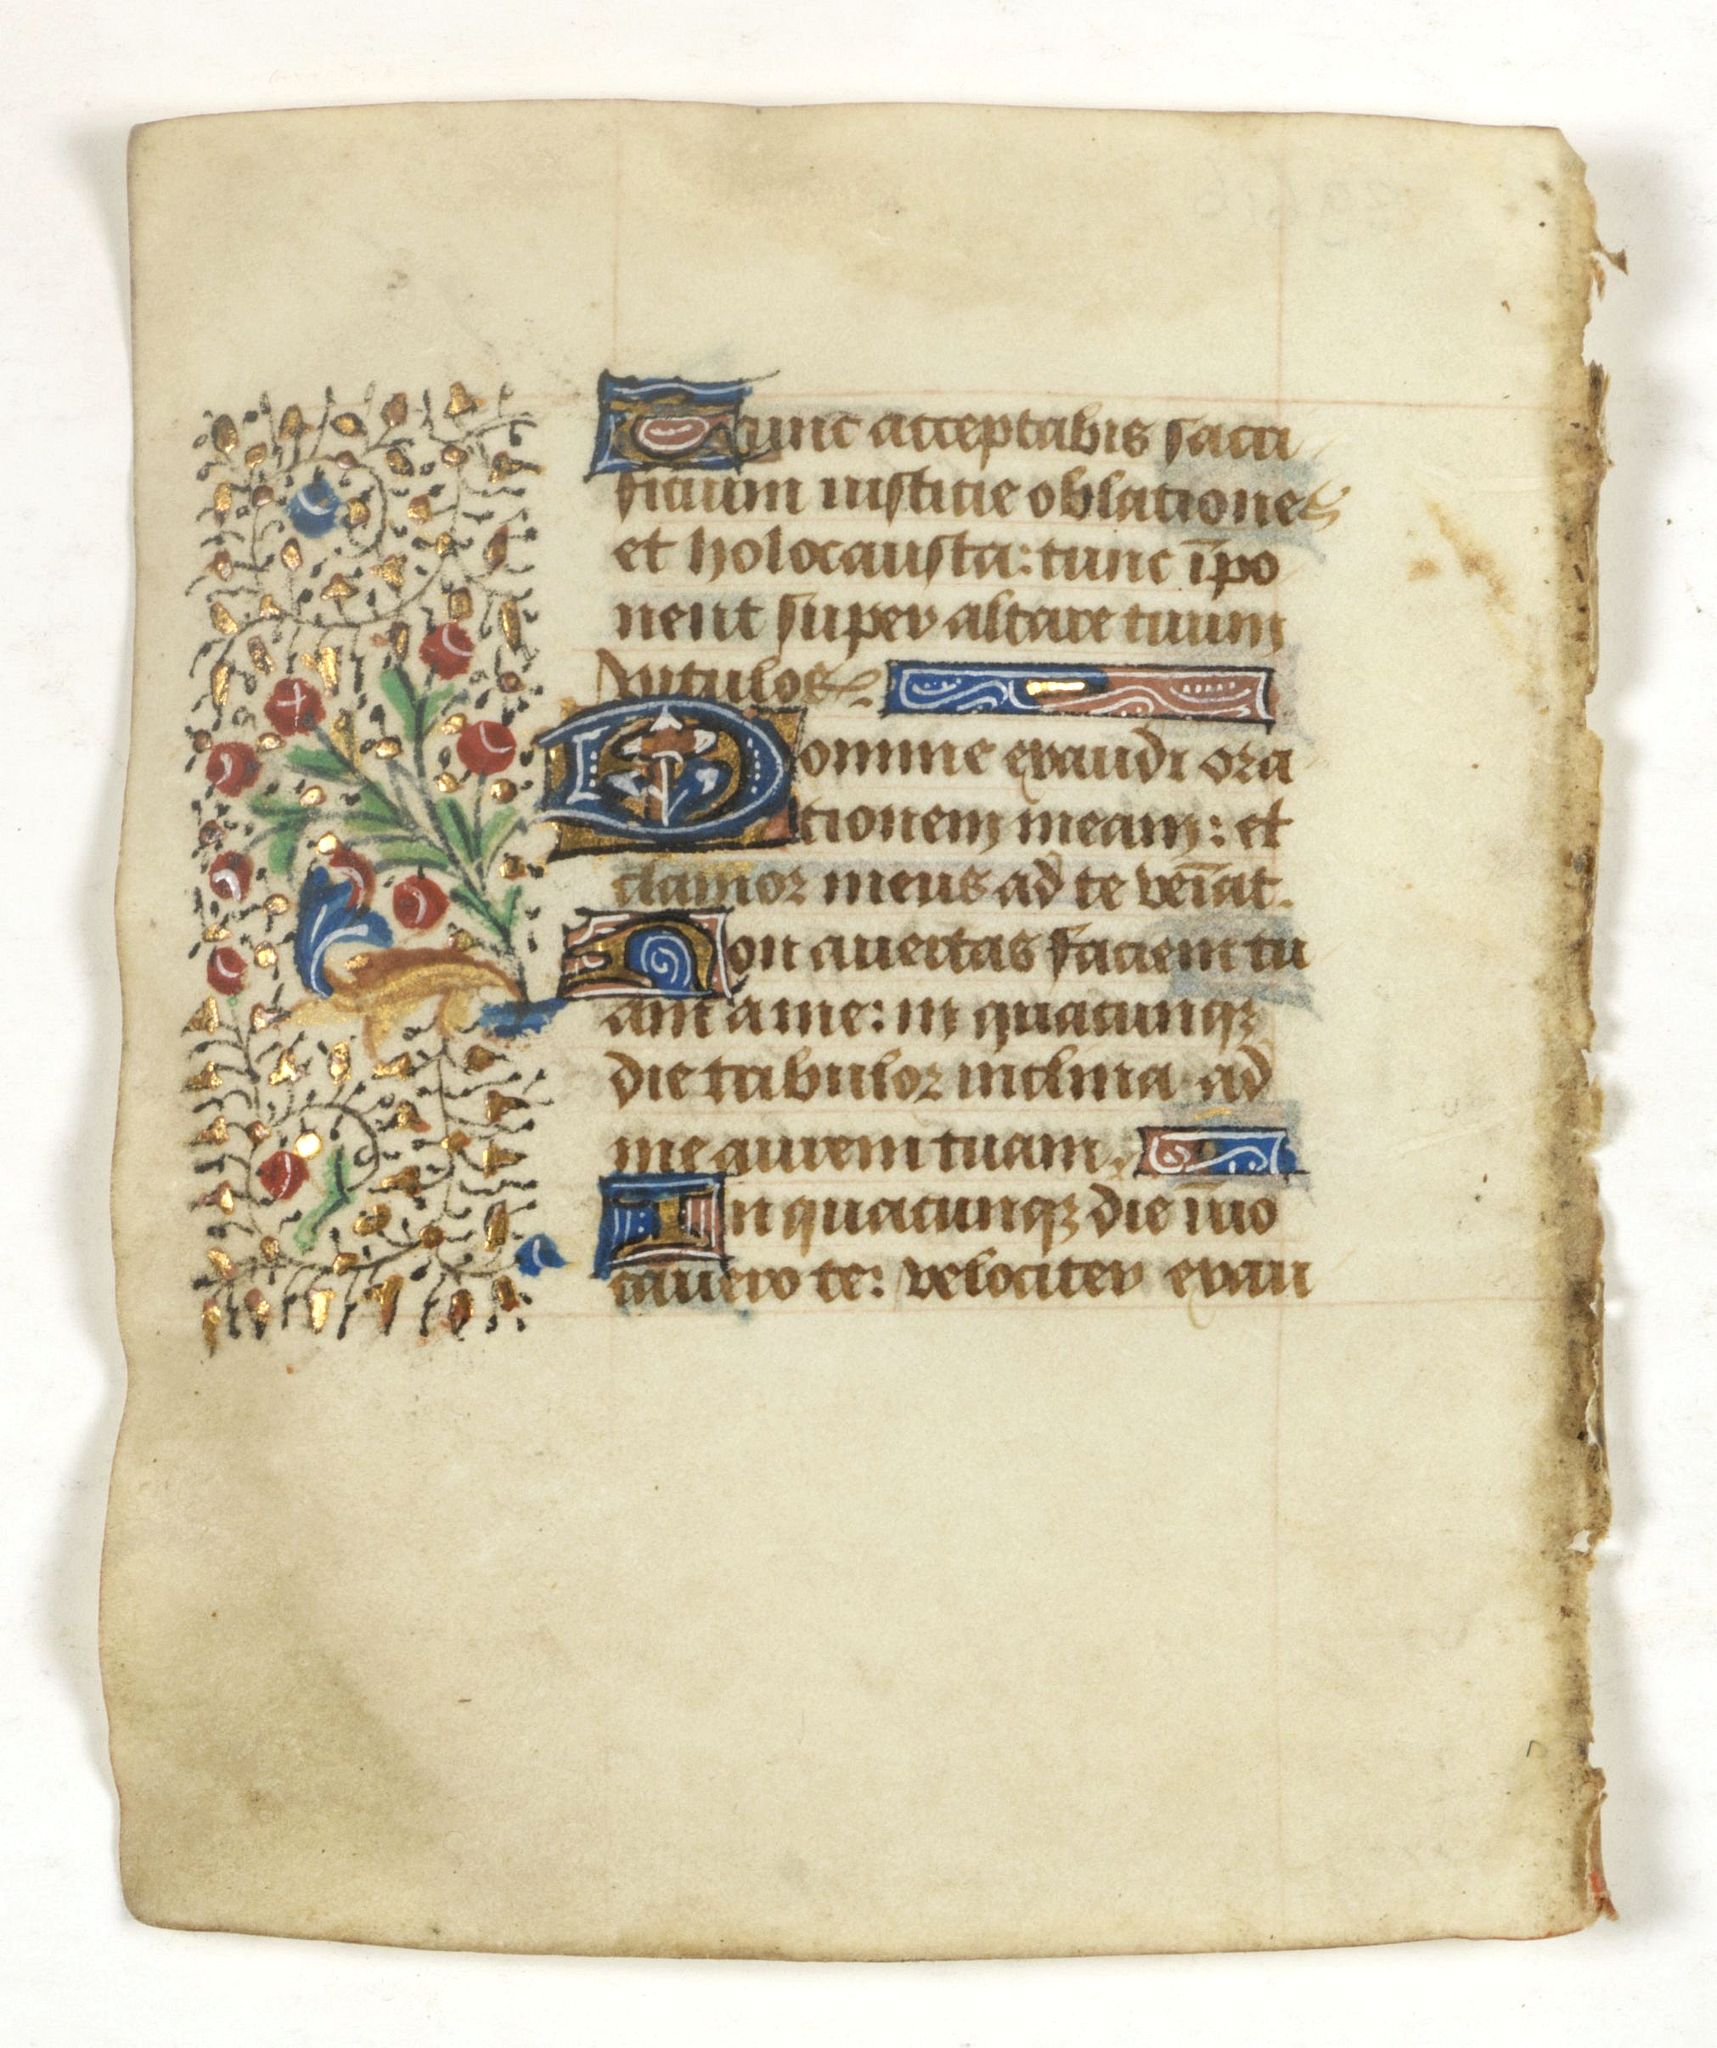 Tunc acceptabis sacri
ficium iusticie oblationes
et holocausta: tunc īpo
nent super altare tuum
vitulos
Domine exaudi ora
tionem meam: et
clamor meus ad te veīat.
Non avertas faciem tu
am a me: in quacunqꝫ
die tribulor inclina ad
me aurem tuam.
In quacunqꝫ die īuo
cavero te: velociter exau